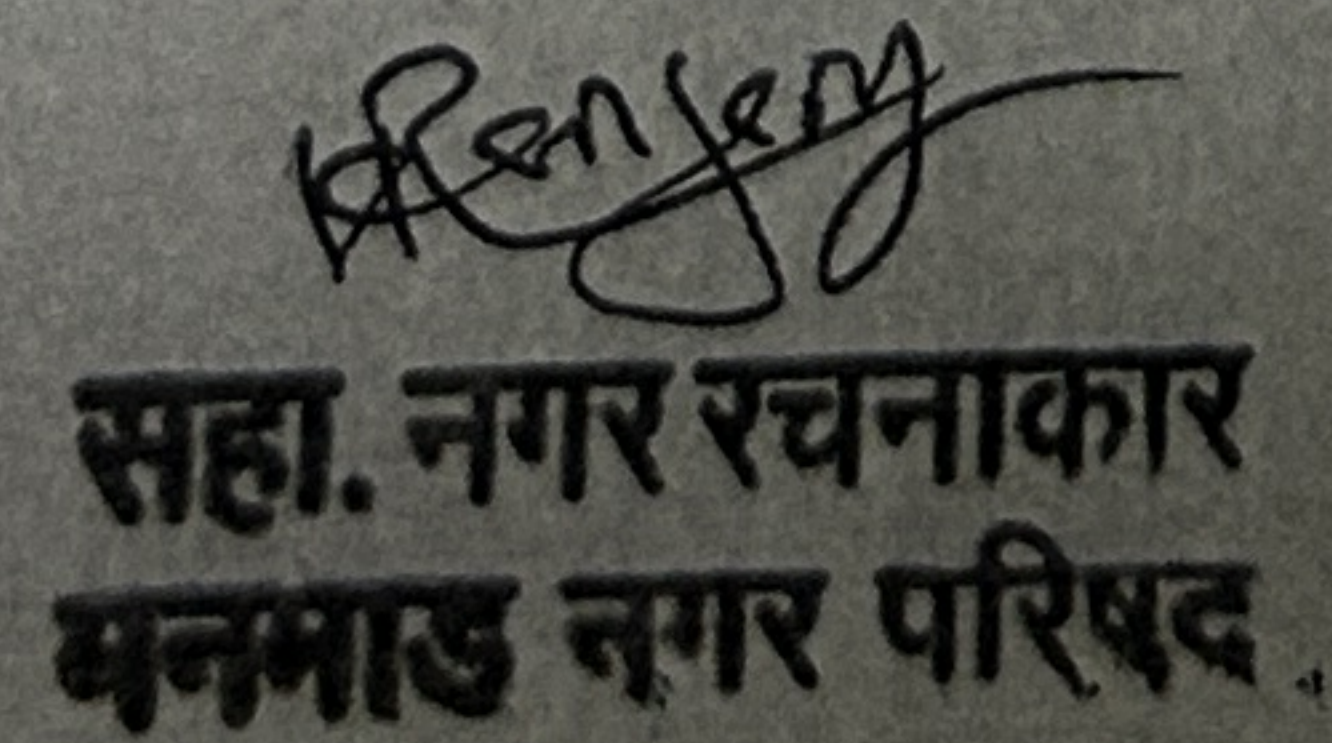 सहा. नगर रचनाकार
मनमाड नगर परिषद